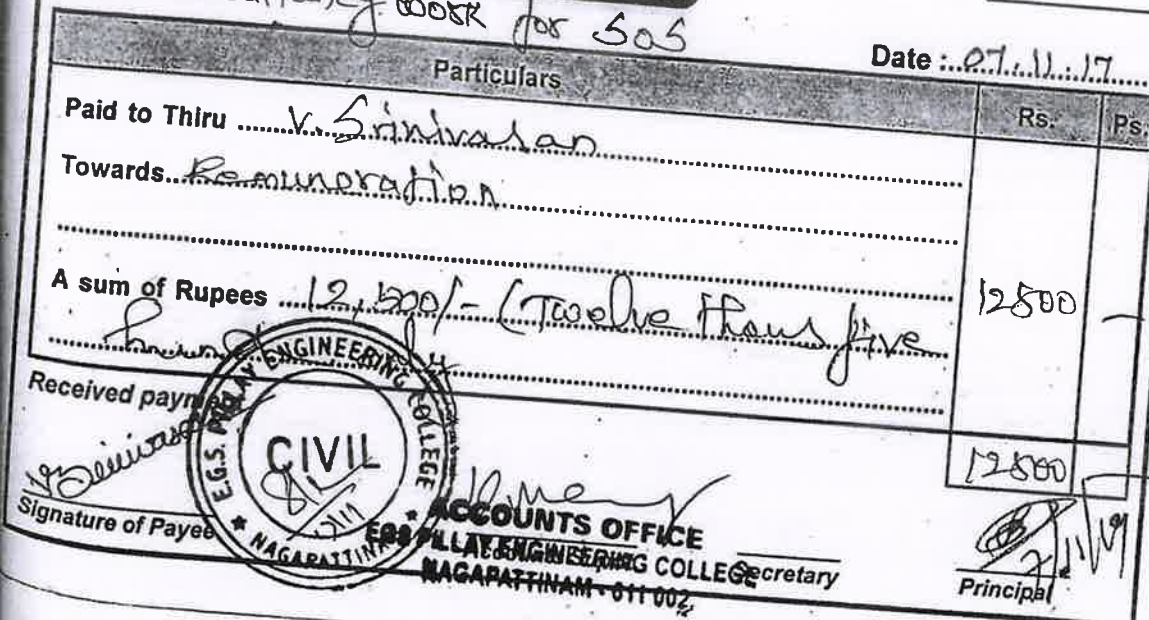 work for SOS
Date : 07.11.17
Particulars Rs. Ps.
Paid to Thiru V. Srinivasan
Towards Remuneration
A sum of Rupees 12,500/- (Twelve thous five 12500 -
12500
Received payment
E.G.S. PILLAY ENGINEERING COLLEGE
CIVIL
NAGAPATTINAM
Signature of Payee
ACCOUNTS OFFICE
EGS PILLAY ENGINEERING COLLEGE
NAGAPATTINAM - 611 002.
Secretary
Principal
7/11/17